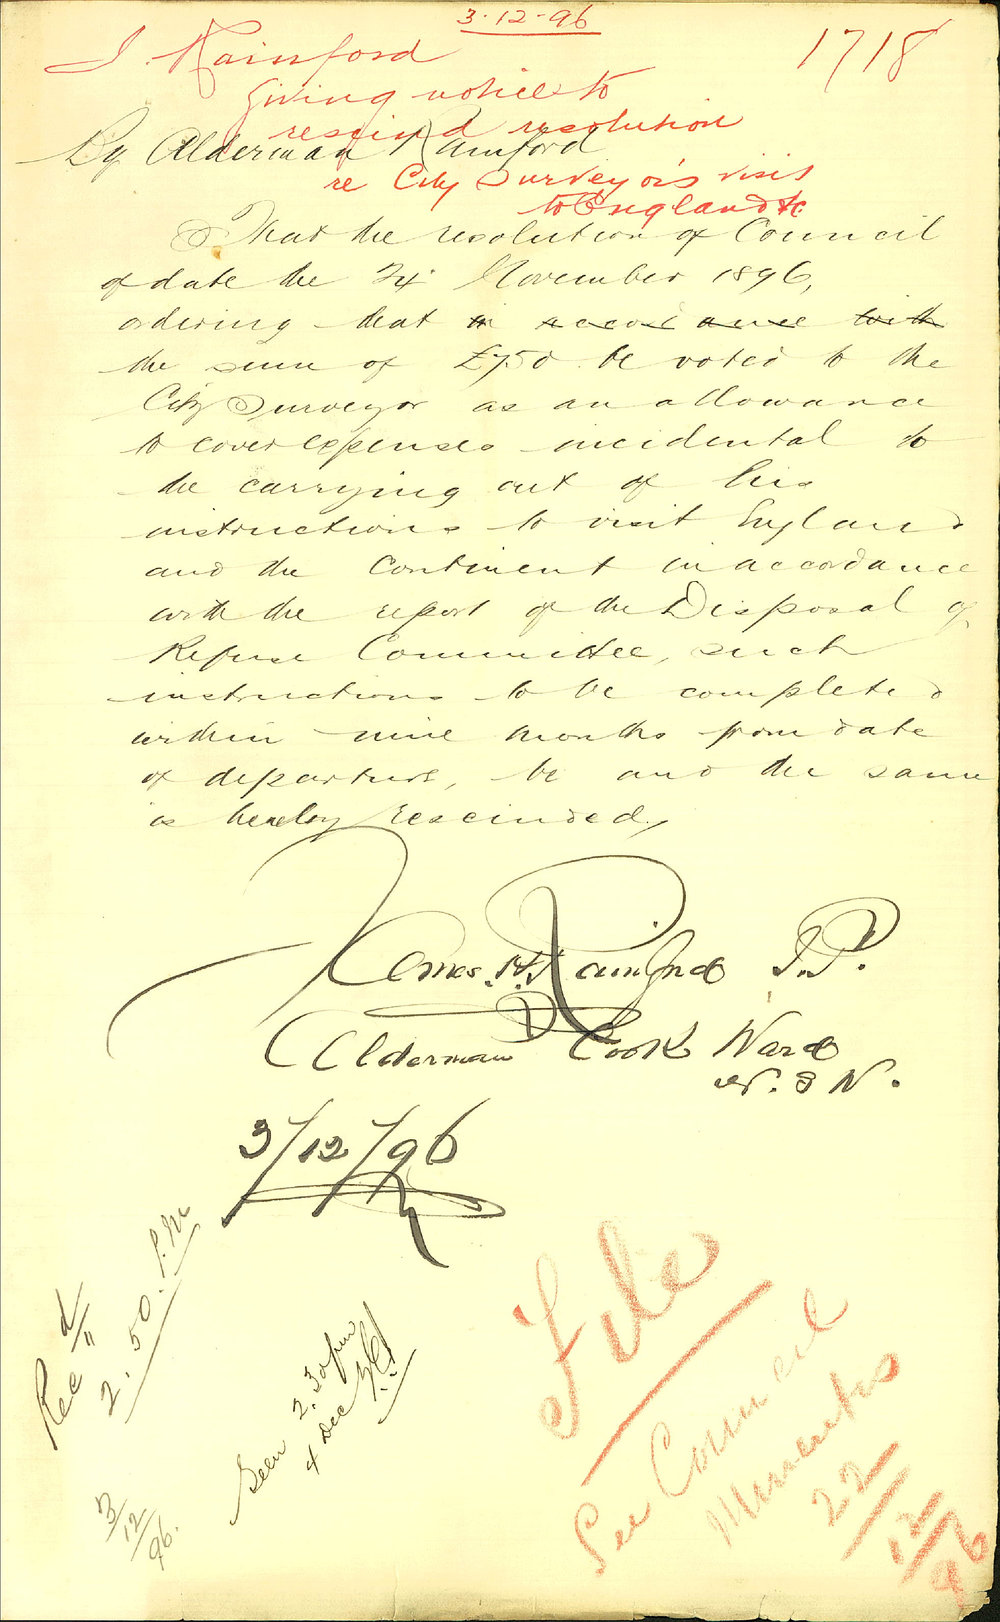 3-12-96
1718
J. Rainford
giving notice to
rescind resolution
re City Surveyor's visit
to England &c.
By Alderman Rainford
That the resolution of Council
of date the 24 November 1896,
ordering that in accordance with
the sum of £750 be voted to the
City Surveyor as an allowance
to cover expenses incidental to
the carrying out of his
instructions to visit England
and the Continent in accordance
with the report of the Disposal of
Refuse Committee, such
instructions to be completed
within nine months from date
of departure, be and the same
is hereby rescinded,
James H. Rainford J.P.
Alderman Cook Ward
3/12/96
Recd
2.50. P.M
3/12/96.
Seen 2.30pm
4 Dec
File
See Council
Minutes
22/12/96